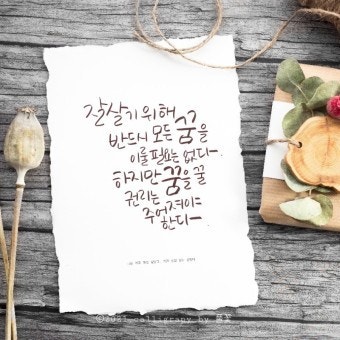 잘살기 위해
반드시 모든 꿈을
이룰 필요는 없다
하지만 꿈을 꿀
권리는
주어져야
한다